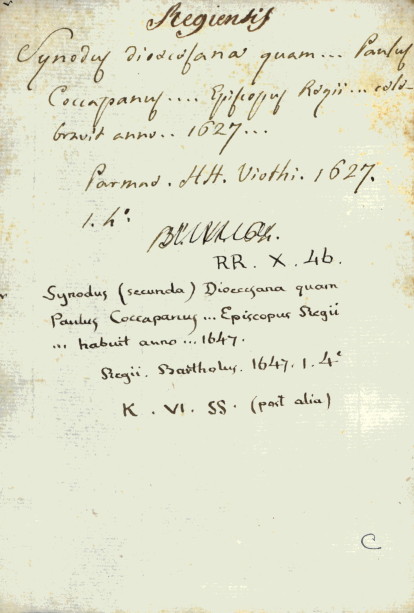 Regiensis
Synodus dioecesana quam... Paulus
Coccapanus.... Episcopus Regii... cele-
bravit anno.. 1627...
Parmae. HH. Viothi. 1627.
1. 4°.
RR. X. 46.
Synodus (secunda) Dioecesana quam
Paulus Coccapanus ... Episcopus Regii
... habuit anno ... 1647.
Regii. Bartholus. 1647. 1. 4°
K. VI. SS. (post alia)
C